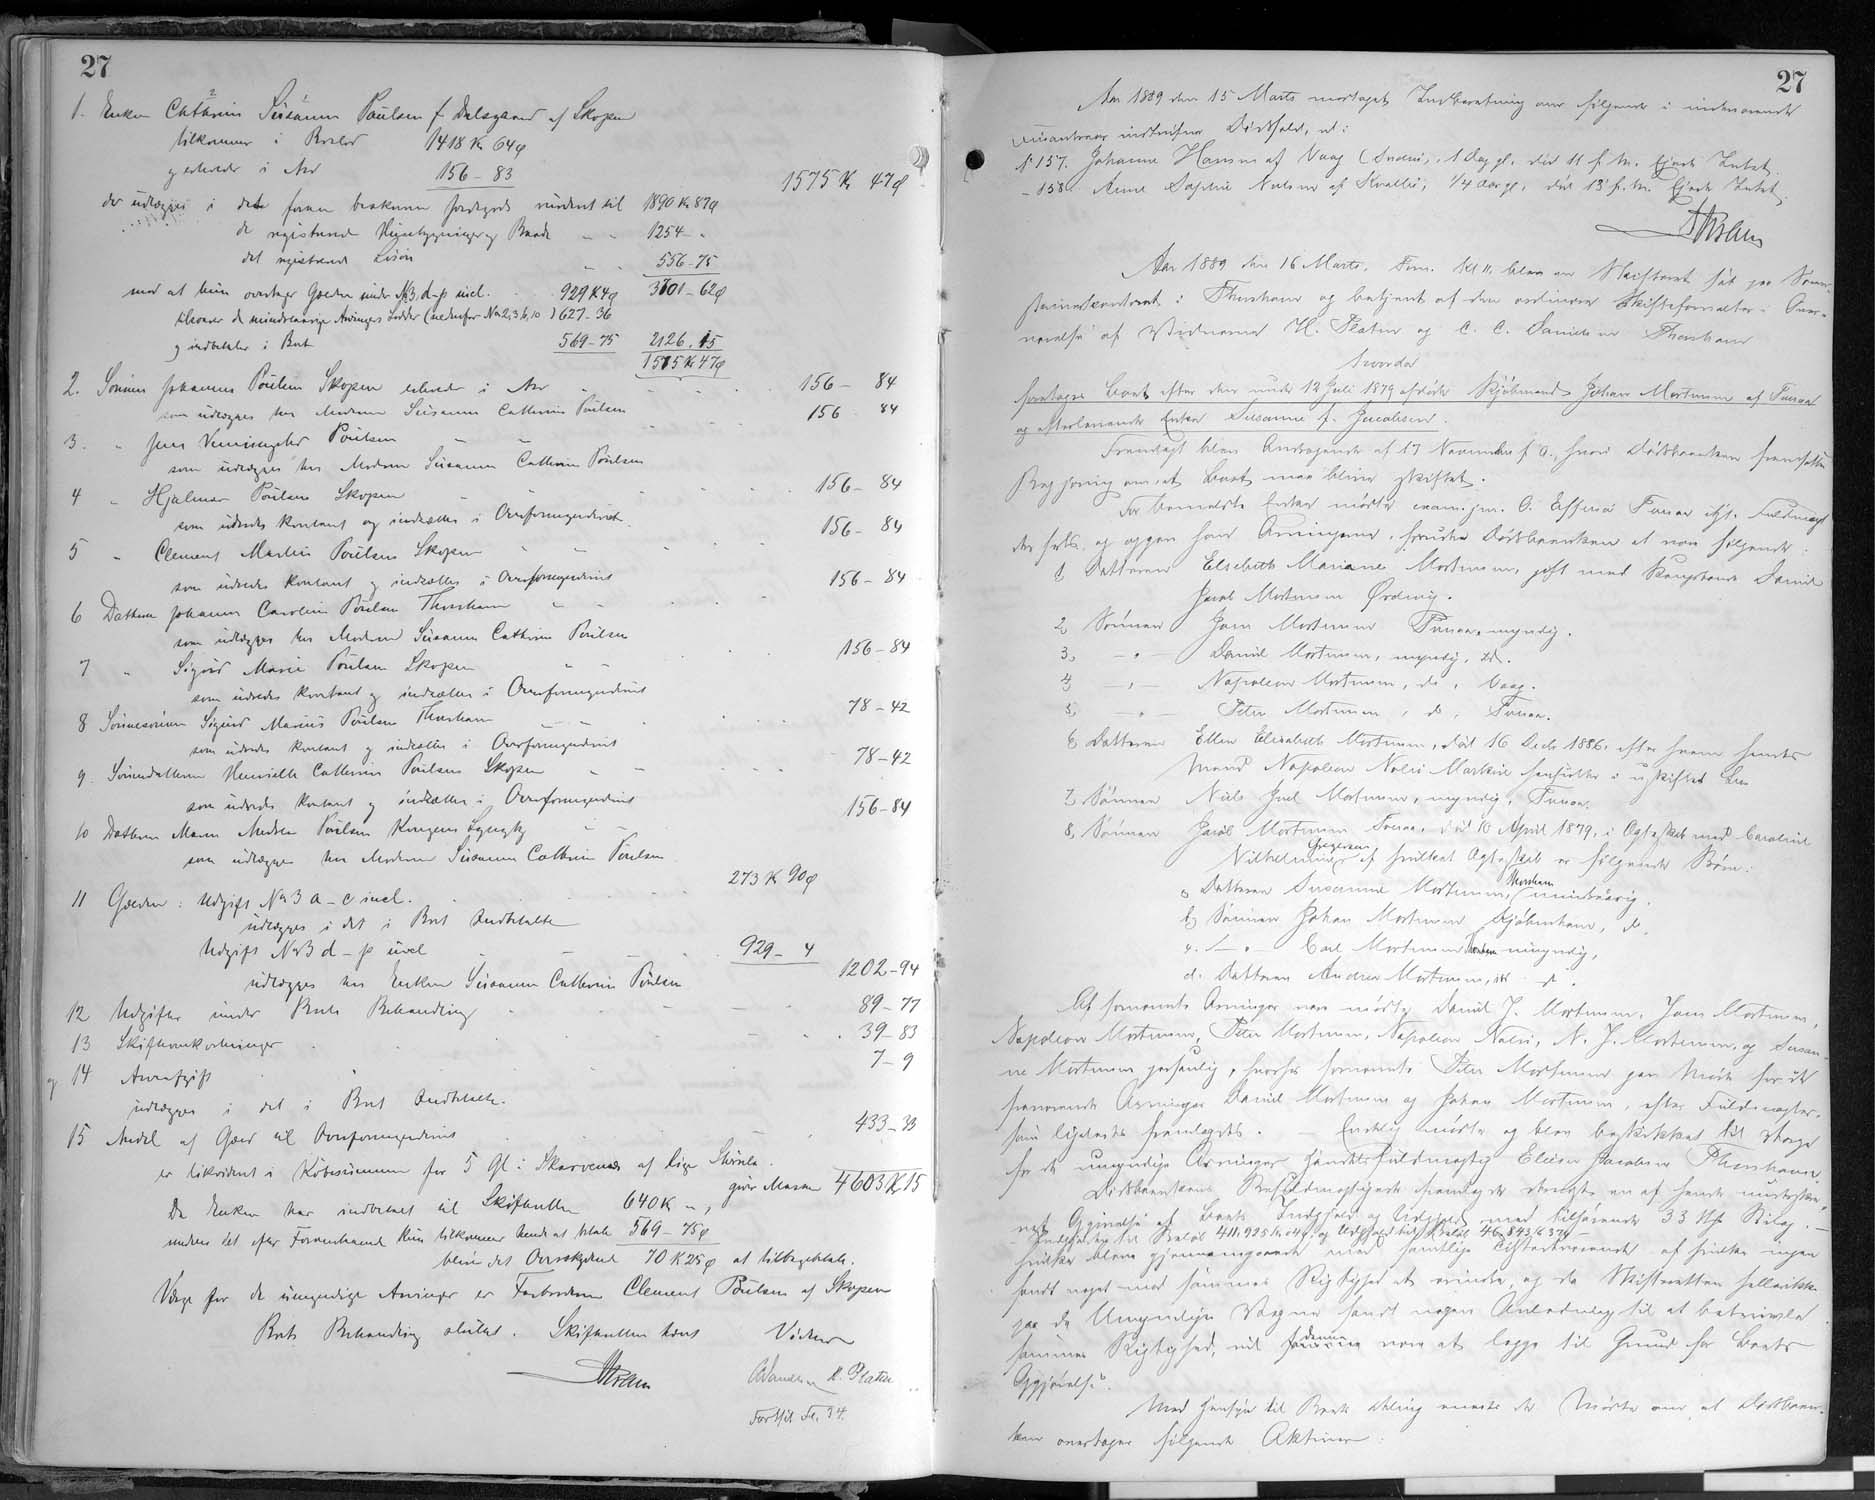 27
1. Enken Cathrine Susanne Poulsen f. Dalsgaard af Skopen
tilkommer i Boslod 1418 K 64 ø
og erholder i Arv 156 - 83
1575 K 47 ø
der udlægges i det foran beskrevne Jordegods vurderet til 1890 Kr 87 ø
de registrerede Husebygninger og Baade 1254 - "
det registrerede Løsøre 556 - 75
mod at hun overtager Gælden under No 3, d-p incl. 929 K 4 ø 3701 - 62 ø
tilsvarer de mindreaarige Arvingers Lodder (nedenfor No 2, 3, 6, 10) 627 - 36
og indbetaler i Boet 569 - 75 2126. 15
1575 K 47 ø
2. Sønnen Johannes Poulsen Skopen erholder i Arv 156 - 84
som udlægges hos Moderen Susanne Cathrine Poulsen
3. " Jens Venningsted Poulsen 156 84
som udlægges hos Moderen Susanne Cathrine Poulsen
4 " Hjalmar Poulsen Skopen 156 - 84
som udredes kontant og indsættes i Overformynderiet
5 " Clement Martin Poulsen Skopen 156 - 84
som udredes kontant og indsættes i Overformynderiet
6 Datteren Johanne Caroline Poulsen Thorshavn 156 - 84
som udlægges hos Moderen Susanne Cathrine Poulsen
7 " Sigrid Marie Poulsen Skopen 156 - 84
som udredes kontant og indsættes i Overformynderiet
8 Sønnesønnen Sigurd Marius Poulsen Thorshavn 78 - 42
som udredes kontant og indsættes i Overformynderiet
9. Sønnedatteren Henriette Cathrine Poulsen Skopen 78 - 42
som udredes kontant og indsættes i Overformynderiet
10 Datteren Maren Poulsen Kongens Lyngby 156 - 84
som udlægges hos Moderen Susanne Cathrine Poulsen
11 Gælden: Udgift No 3 a - c incl. 273 K 90 ø
udlægges i det i Boet Indbetalte
Udgift No 3 d - p incl 929 - 4
udlægges hos Enken Susanne Cathrine Poulsen 1202 - 94
12 Udgifter under Boets Behandling 89 - 77
13 Skifteomkostninger 39 - 83
og 14 Arveafgift 7 - 9
udlægges i det i Boet Indbetalte.
15 Andel af Gæld til Overformynderiet 433 - 33
er likvideret i Købesummen for 5 Gl. i Skarvenes af
giver Massen 4603 K 15
Da Enken har indbetalt til Skifteretten 640 K - ",
medens det efter Foranstaaende kun tilkommer hende at betale 569 - 75 ø
bliver det Overskydende 70 K 25 ø at tilbagebetale.
Værge for de umyndige Arvinger er Farbroderen Clement Poulsen af Skopen
Boets Behandling sluttet. Skifteretten hævet Vidner
H. Platin
Fortsat Fol. 34.
27
Aar 1889 den 15 Marts modtaget Indberetning om følgende i indeværende
indtrufne Dødsfald, nl:
No 157. Johanne Hansen af Vaag, 1 Dag gl., død 11 f. M. Ejede Intet.
- 158. Anne Sophie Nielsen af Kvalbø, 1/4 Aar gl., død 13 f. M. Ejede Intet.
Aar 1889 den 16 Marts. Form. Kl 11 blev en Skifteret sat paa Soren-
skriverkontoret i Thorshavn og betjent af den ordinære Skifteforvalter i Over-
værelse af Vidnerne H. Platin og C. C. Danielsen Thorshavn
hvorda
foretoges Boet efter den under 12 Juli 1879 afdøde Kjøbmand Johan Mortensen af Tveraa
og efterlevende Enke Susanne f. Jacobsen.
Fremlagt blev Andragende af 17 November f. A., hvori Dødsboenken fremsætter
Begjæring om, at Boet maa blive skiftet.
For bemeldte Enke mødte exam. jur. O. Effersø Tveraa ifgl. Fuldmagt
der førtes og opgav som Arvinger, foruden Dødsboenken at være følgende:
1, Datteren Elsebeth Mariane Mortensen, gift med Daniel
Jacob Mortensen Ørdevig.
2, Sønnen Jens Mortensen Tveraa, myndig.
3, - " - Daniel Mortensen, myndig, do.
4, - " - Napoleon Mortensen, do, Vaag.
5, - " - Peter Mortensen, do, Tveraa.
6, Datteren Ellen Elisabeth Mortensen, død 16 Decbr 1886, efter hvem hendes
Mand Napoleon Nolsø hensidder i uskiftet Bo
7, Sønnen Niels Juel Mortensen, myndig, Tveraa.
8, Sønnen Jacob Mortensen Tveraa, død 10 April 1879, i Ægteskab med Caroline
Vilhelmine Gregersen, af hvilket Ægteskab er følgende Børn:
a Datteren Susanne Mortensen, Thorshavn mindreaarig.
b, Sønnen Johan Mortensen Kjøbenhavn, do.
c. - " - Carl Mortensen Thorshavn umyndig,
d. Datteren Andrea Mortensen, do. do.
Af fornævnte Arvinger vare mødte Daniel J. Mortensen, Jens Mortensen,
Napoleon Mortensen, Peter Mortensen, Napoleon Nolsø, N. J. Mortensen, og Susan-
ne Mortensen personlig, hvorhos fornævnte Peter Mortensen gav Møde for de
fraværende Arvinger Daniel Mortensen og Johan Mortensen, efter Fuldmagter,
som ligeledes fremlagdes. - Endelig mødte og blev beskikket til Værge
for de umyndige Arvinger Handelsfuldmægtig Elias Jacobsen Thorshavn.
Dødsboenkens Befuldmægtigede fremlagde derefter en af hende underskre-
vet Opgivelse af Boets Indtægter og Udgifter med tilhørende 33 Stk Bilag. -
Indtægter til Beløb 411.925 Kr 04 ø og Udgifter til Beløb 46.843 Kr 37 ø -
hvilke bleve gjennemgaaede med samtlige Tilstedeværende af hvilke ingen
fandt noget mod sammes Rigtighed at erindre, og da Skifteretten hellerikke
paa de Umyndiges Vegne fandt nogen Anledning til at betvivle
sammes Rigtighed, vil denne være at lægge til Grund for Boets
Opgjørelse.
Med Hensyn til Boets Deling enedes de Mødte om, at Dødsboen-
ken overtager følgende Aktiver: